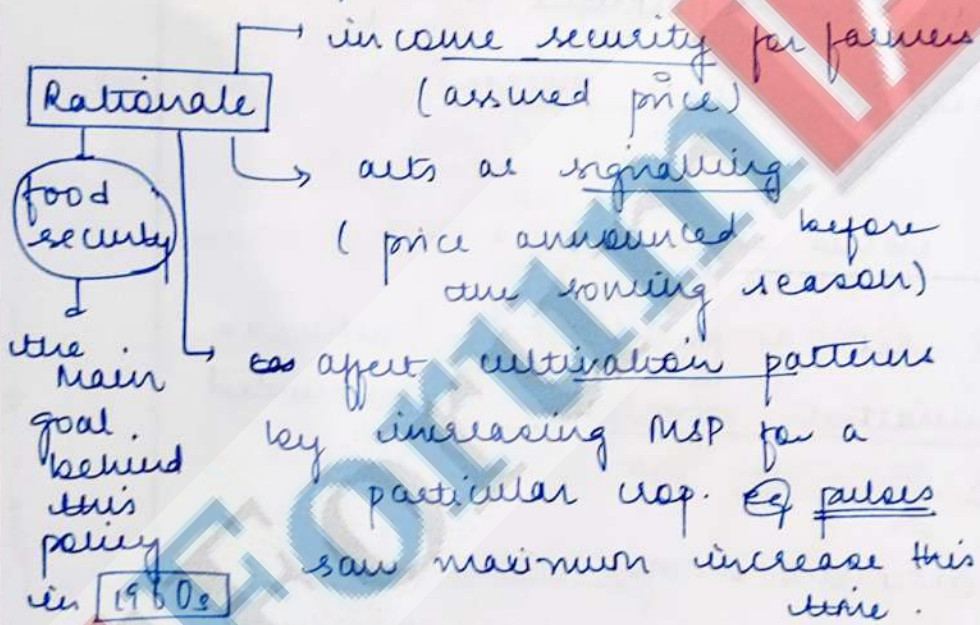 income security for farmers
Rationale
(assured price)
acts as signalling
food
security
(price announced before
the sowing season)
the
main
goal
behind
this
policy
in 1960s
affect cultivation patterns
by increasing MSP for a
particular crop. Eg pulses
saw maximum increase this
time.
Forum